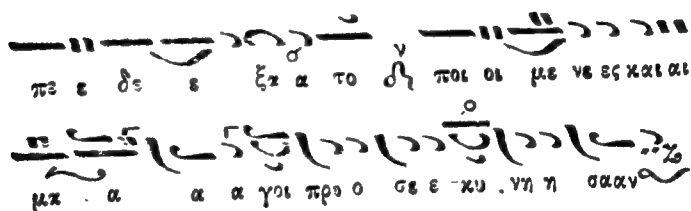 πε ε δε ε ξα α το ν ποι οι με νε ες και αι
μα . α α α γοι προ ο σε ε -κυ . νη η σααν